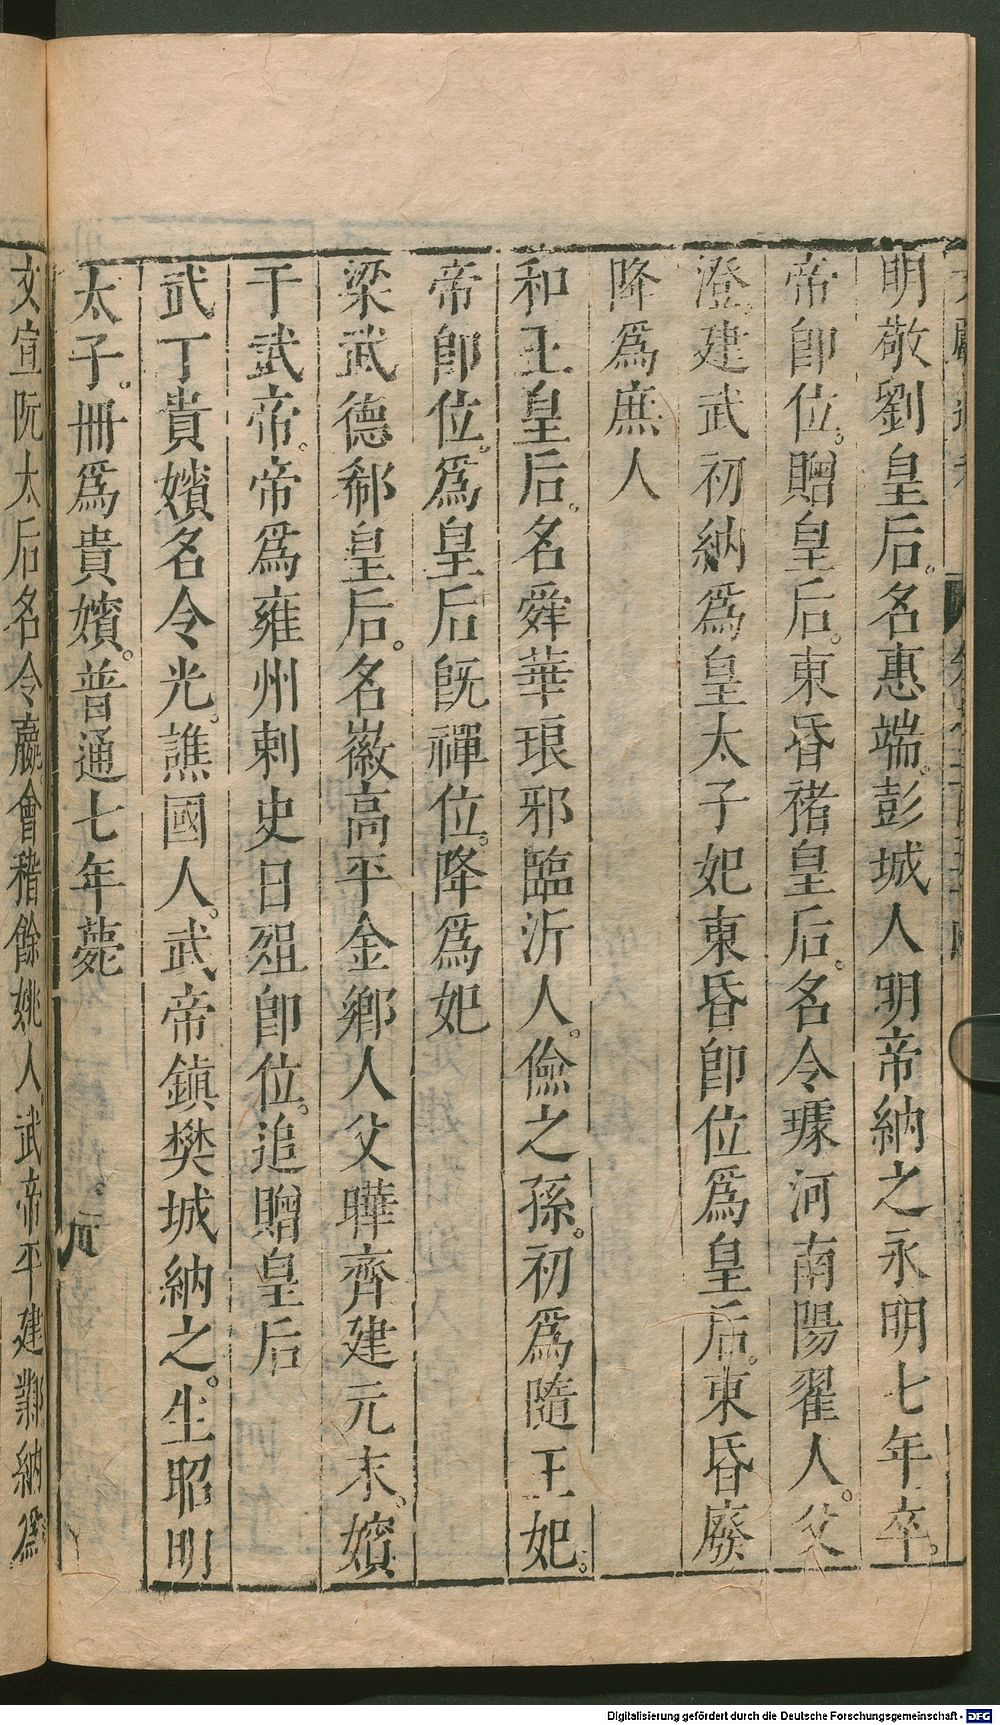 明敬劉皇后。名惠端。彭城人明帝納之永明七年卒。
帝卽位。贈皇后。東昏褚皇后。名令璩河南陽翟人。父
澄建武初納爲皇太子妃東昏卽位爲皇后。東昏廢
降爲庶人
和王皇后。名舜華琅邪臨沂人。儉之孫。初爲隨王妃。
帝卽位。爲皇后旣禪位。降爲妃
梁武德郗皇后。名徽高平金鄉人父曄齊建元末。嬪
于武帝。帝爲雍州刺史日殂卽位。追贈皇后
武丁貴嬪名令光。譙國人。武帝鎮樊城納之。生昭明
太子。冊爲貴嬪。普通七年薨
文宣阮太后名令嬴會稽餘姚人。武帝平建鄴納爲
Digitalisierung gefördert durch die Deutsche Forschungsgemeinschaft - DFG